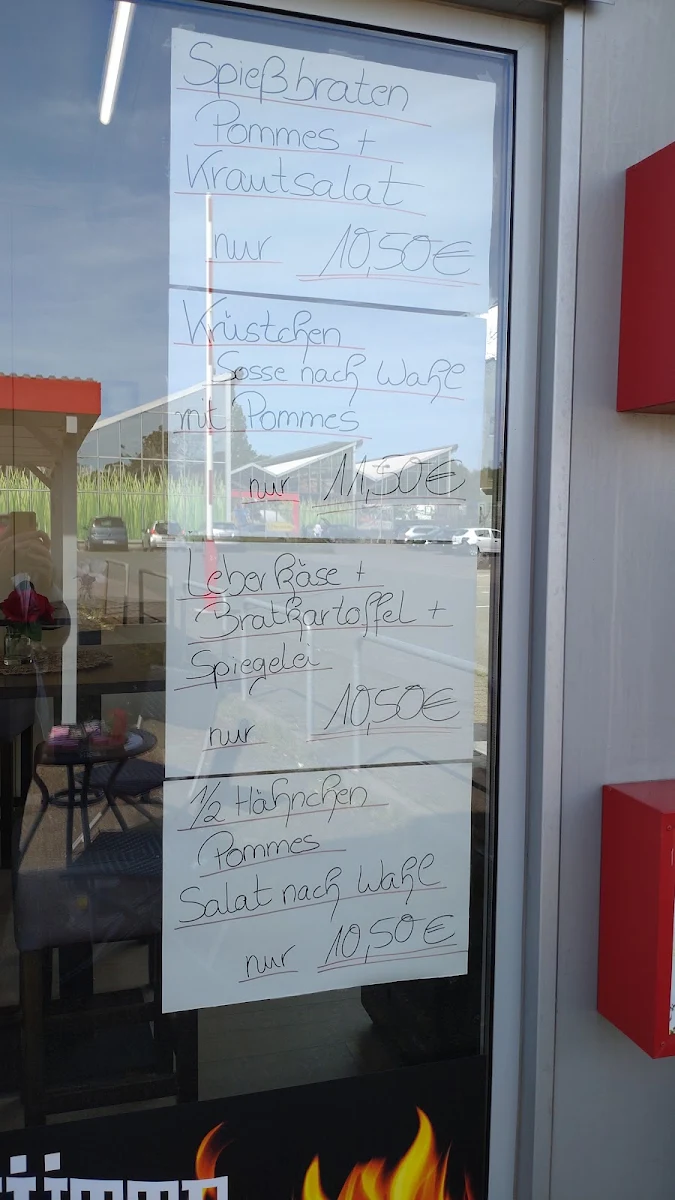 Spießbraten
Pommes +
Krautsalat
nur 10,50€
Krüstchen
Sosse nach Wahl
mit Pommes
nur 11,50€
Leberkäse +
Bratkartoffel +
Spiegelei
nur 10,50€
1/2 Hähnchen
Pommes
Salat nach Wahl
nur 10,50€